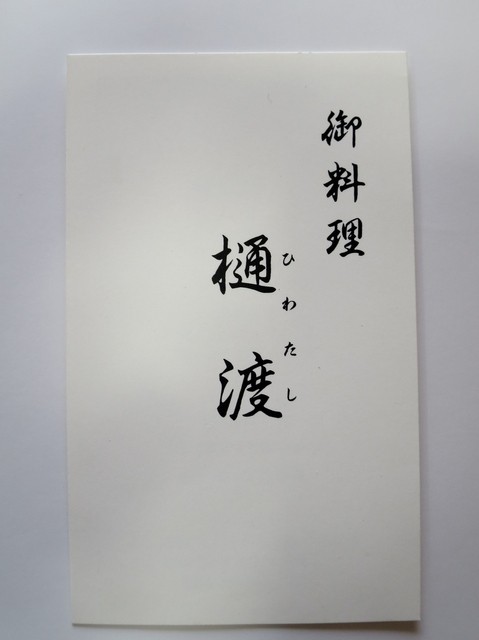 御料理
樋渡
ひわたし